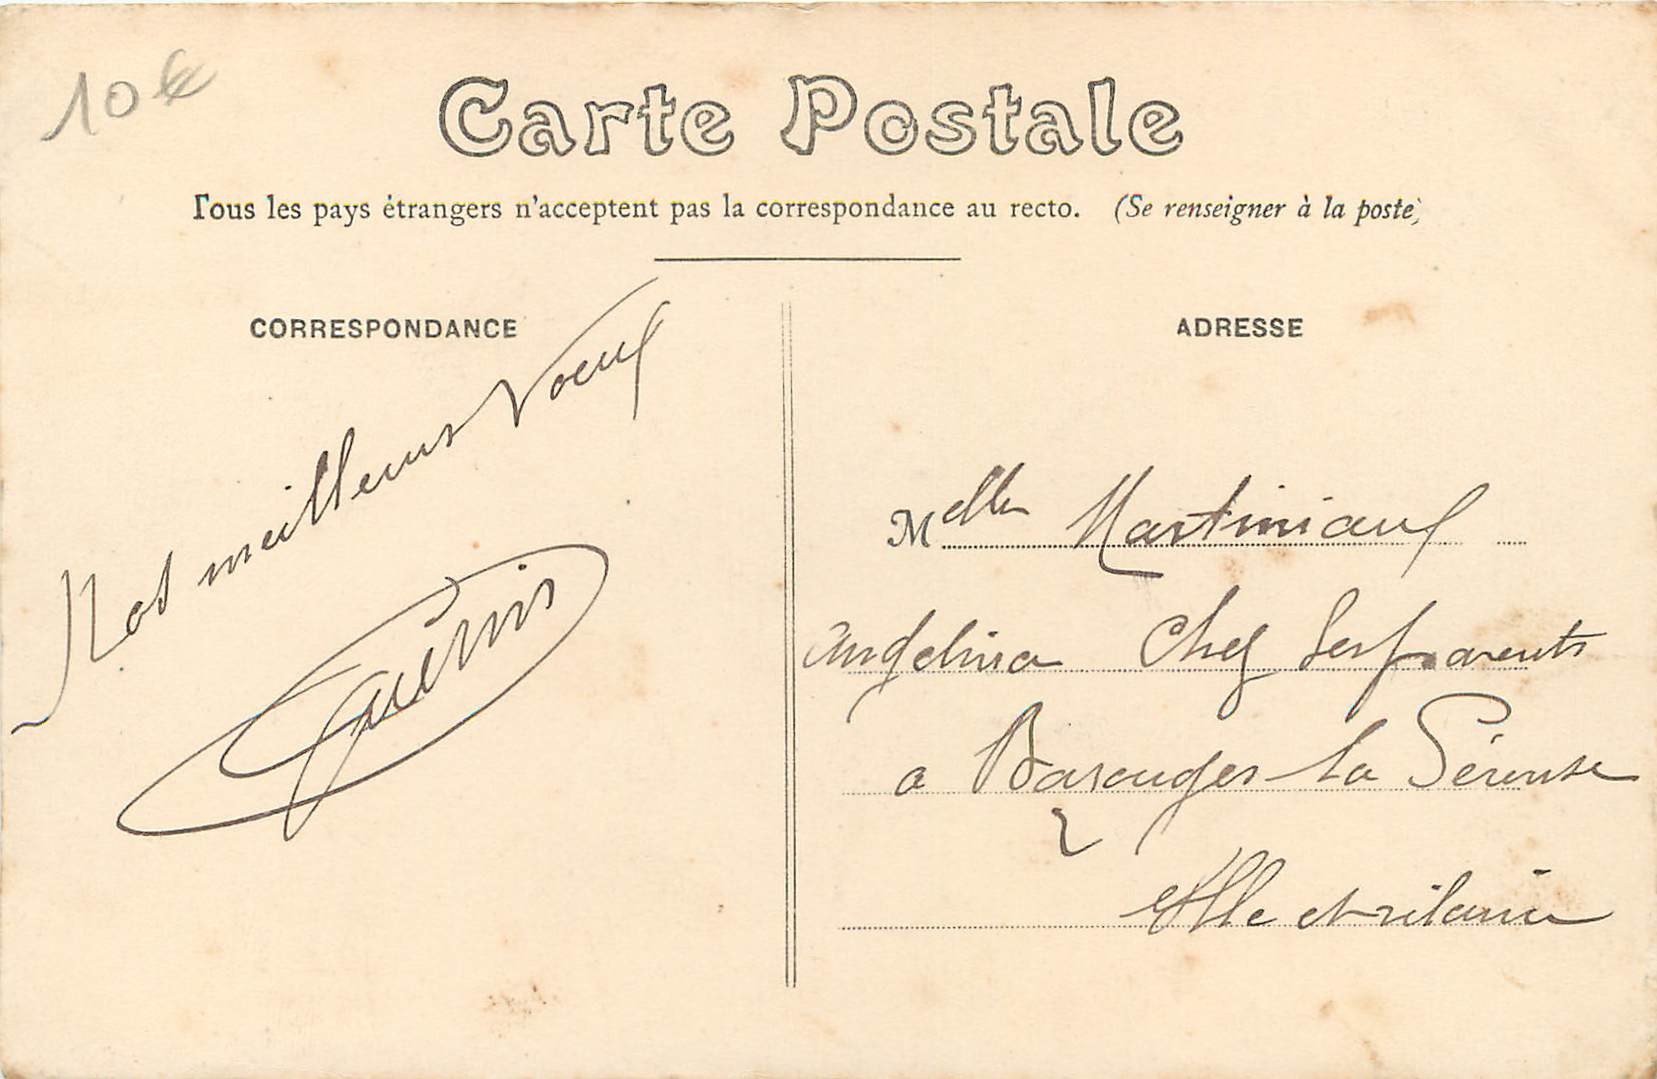 10€
Carte Postale
Tous les pays étrangers n'acceptent pas la correspondance au recto. (Se renseigner à la poste)
CORRESPONDANCE
Nos meilleurs Voeux
ADRESSE
Melle Martiniaux
Angelina Chez Ses parents
a Bazouges la Pérouse
Ille et vilaine